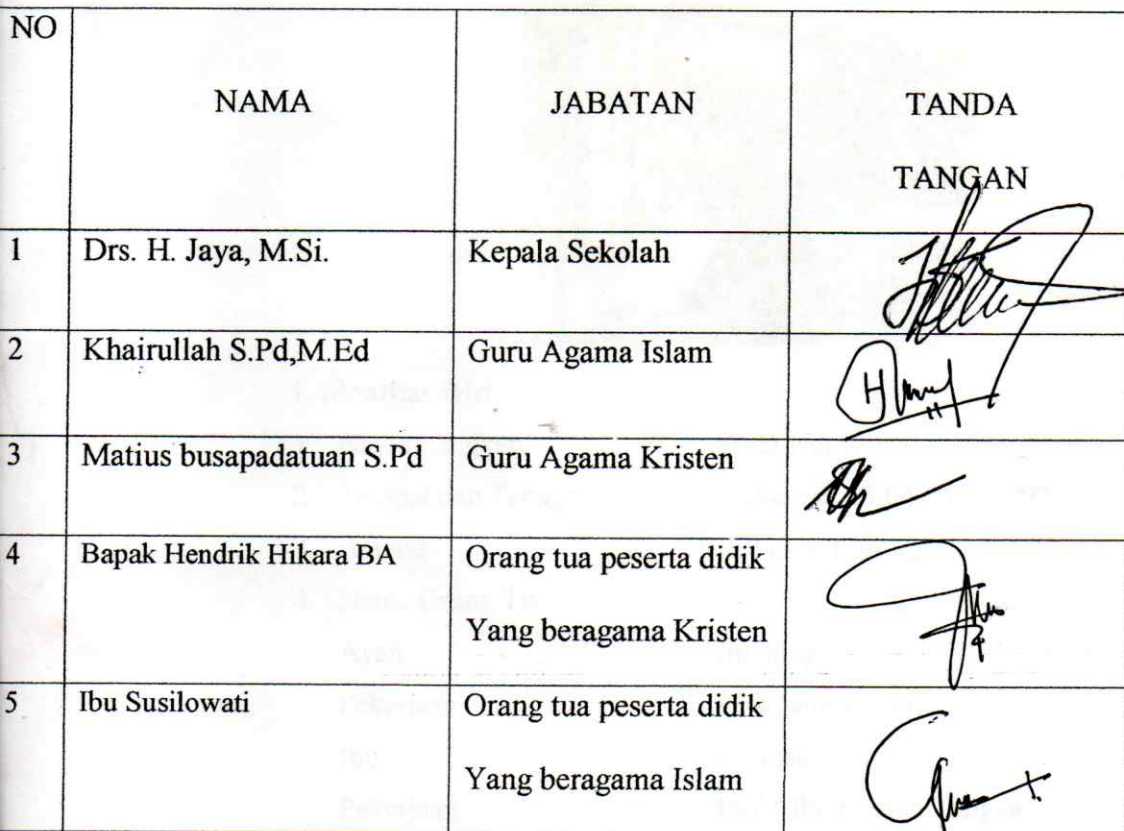 NO
NAMA JABATAN TANDA
TANGAN
1 Drs. H. Jaya, M.Si. Kepala Sekolah
2 Khairullah S.Pd,M.Ed Guru Agama Islam
3 Matius busapadatuan S.Pd Guru Agama Kristen
4 Bapak Hendrik Hikara BA Orang tua peserta didik
Yang beragama Kristen
5 Ibu Susilowati Orang tua peserta didik
Yang beragama Islam